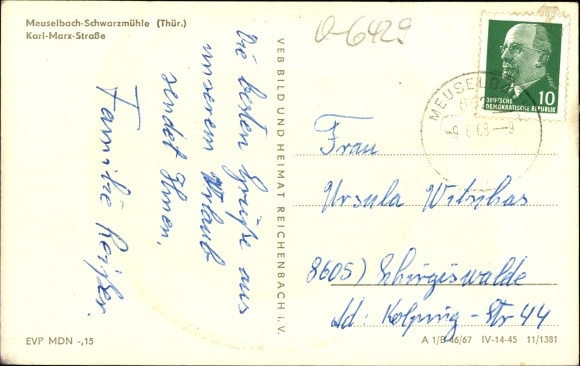 Meuselbach-Schwarzmühle (Thür.)
Karl-Marx-Straße
0-6429
Die besten Grüße aus
unserem Urlaub
sendet Ihnen,
Familie
VEB BILD UND HEIMAT REICHENBACH i.V.
MEUSELB
-9.8.68--9
DEUTSCHE
DEMOKRATISCHE REPUBLIK
10
Frau
Ursula
8605) Schirgiswalde
Ad. Kolping-Str 44
EVP MDN -,15
A 1/B 46/67 IV-14-45 11/1381